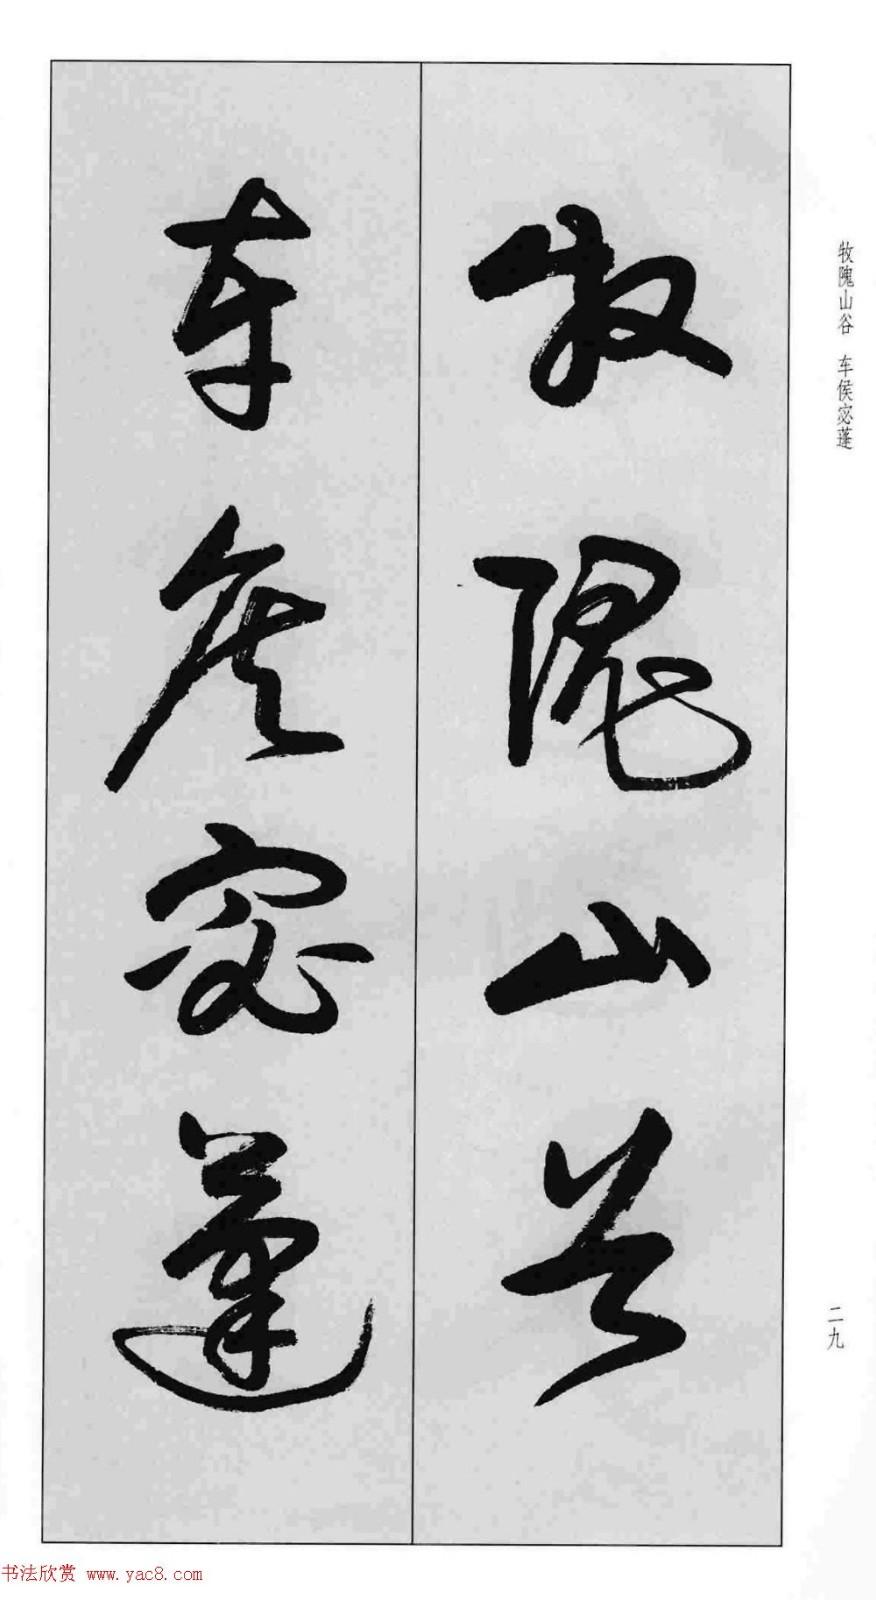 牧隗山谷
车侯宓蓬
牧隗山谷 车侯宓蓬
二九
书法欣赏 www.yac8.com